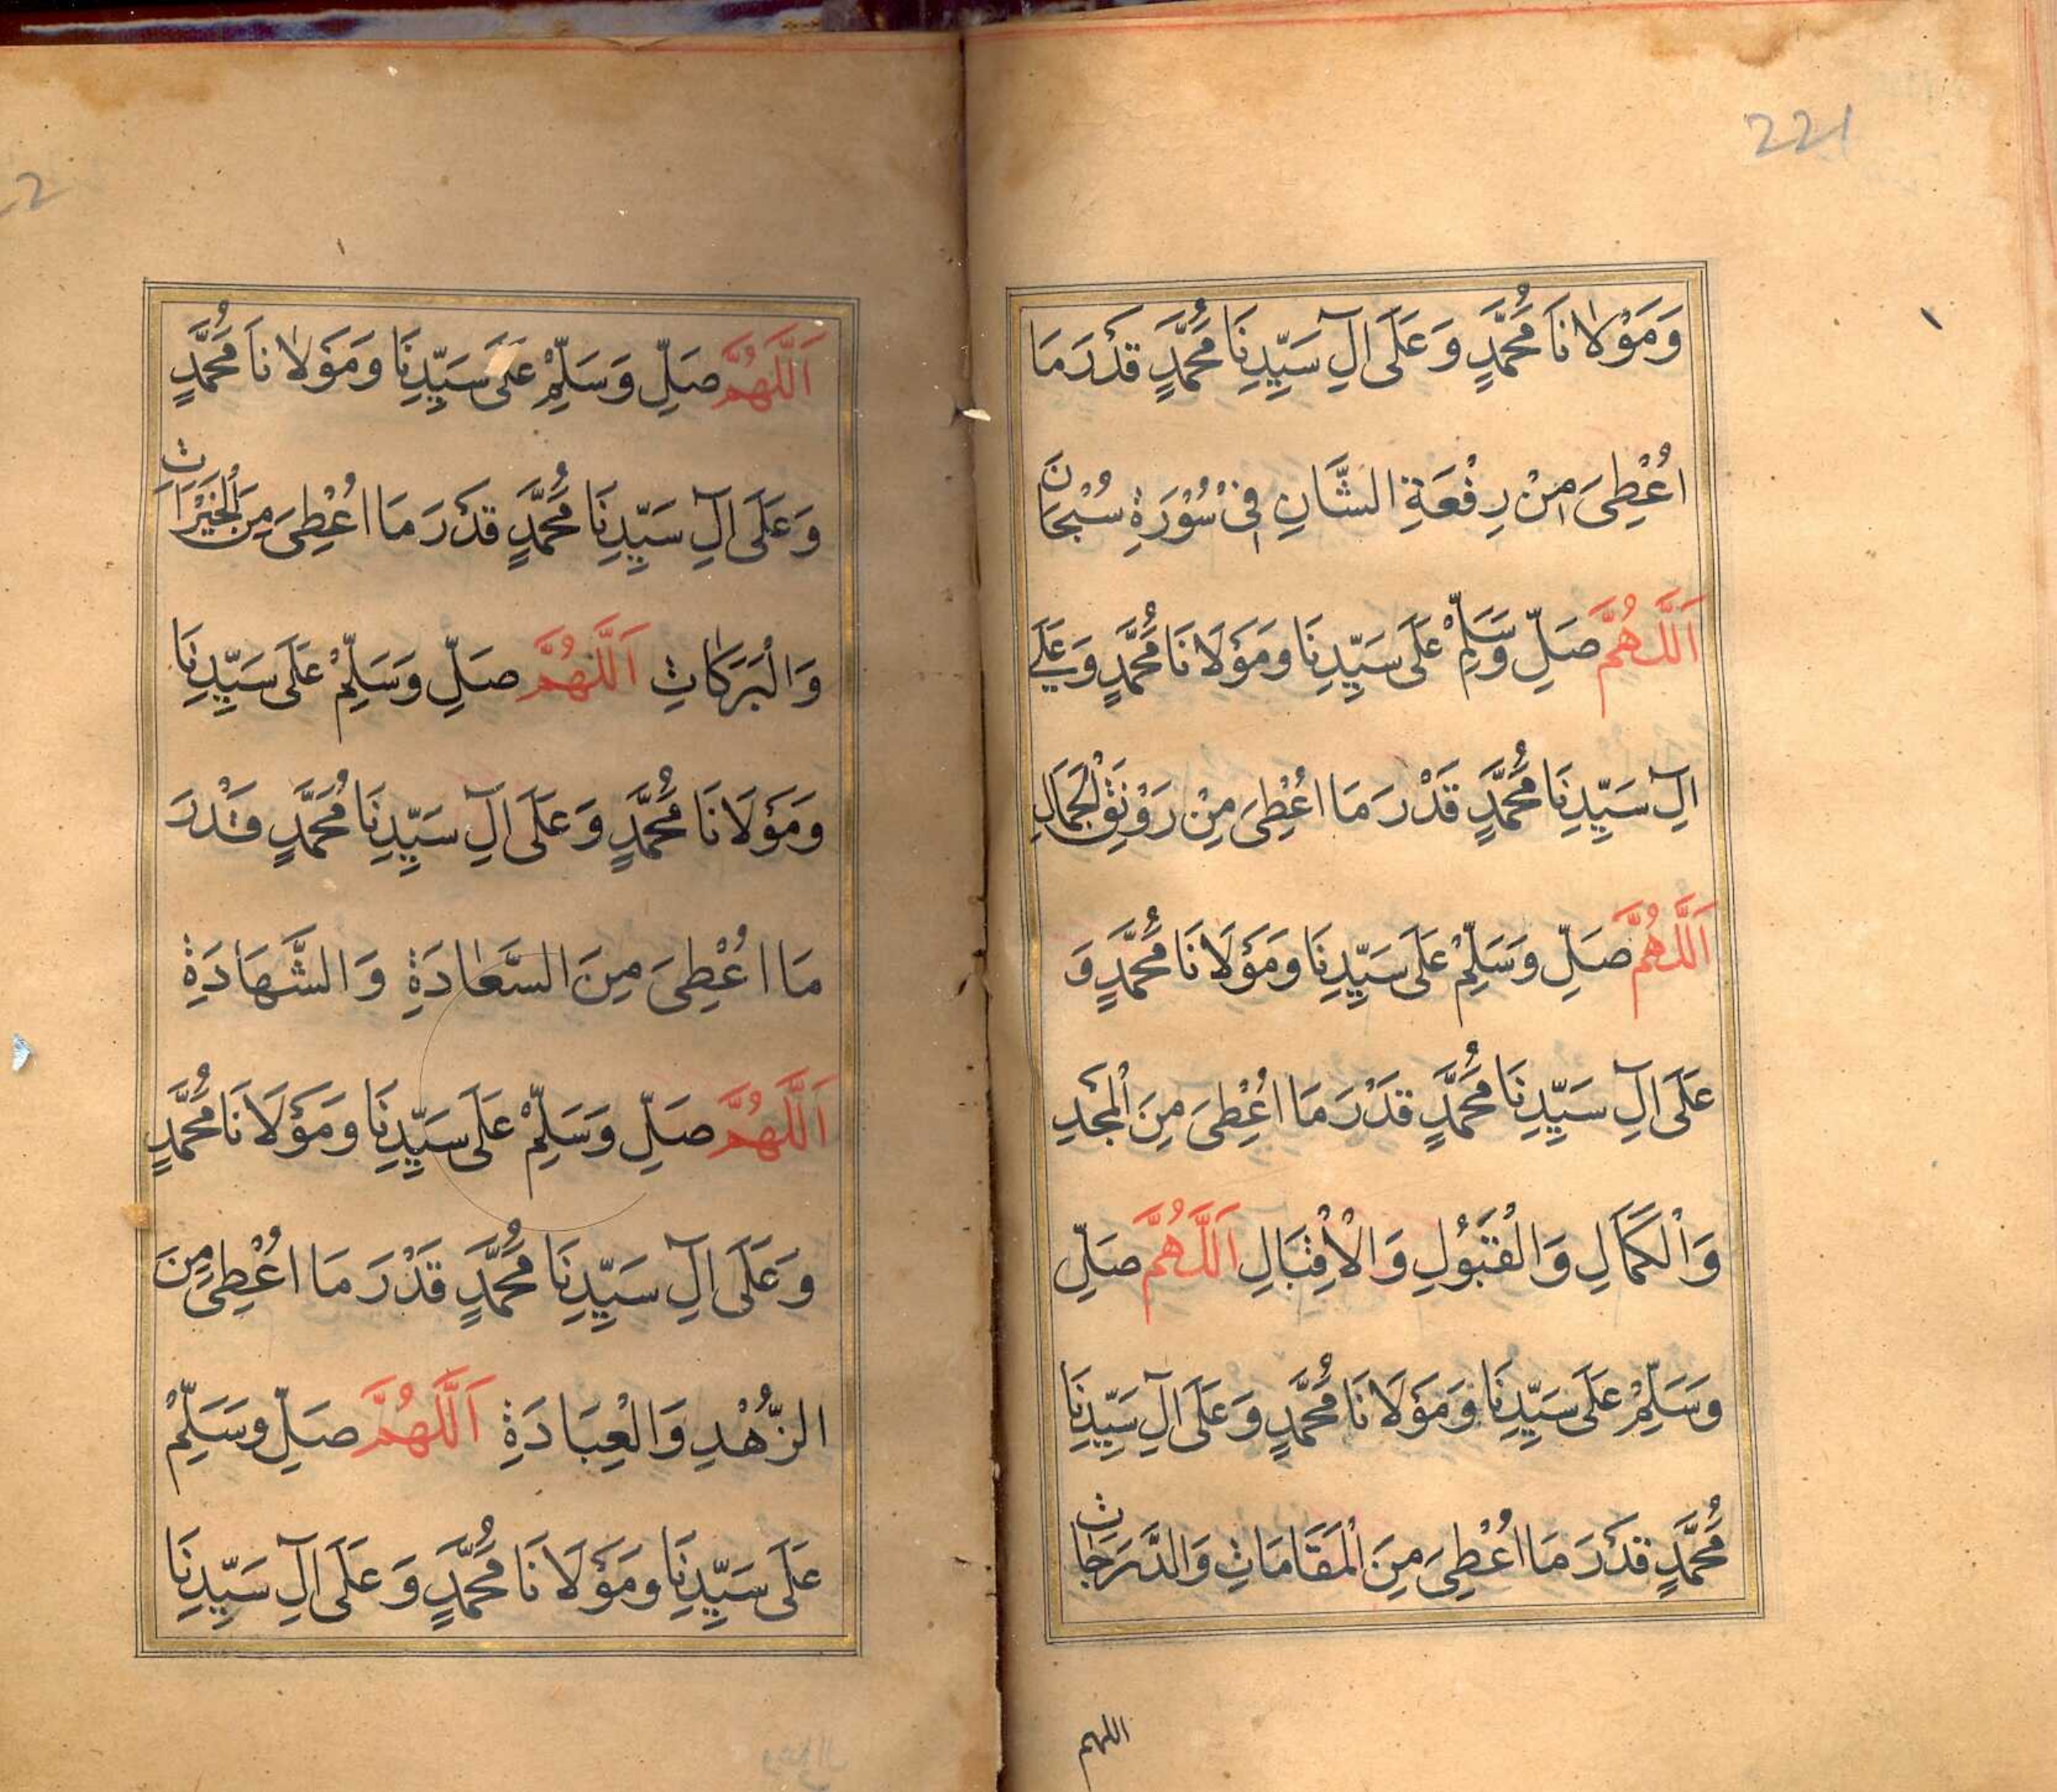 221
وَمَوْلَانَا مُحَمَّدٍ وَعَلَى اٰلِ سَيِّدِنَا مُحَمَّدٍ قَدْرَ مَا
اُعْطِىَ مِنْ رِفْعَةِ الشَّانِ فِىْ سُوْرَةِ سُبْحَانَ
اَللّٰهُمَّ صَلِّ وَسَلِّمْ عَلَى سَيِّدِنَا وَمَوْلَانَا مُحَمَّدٍ وَعَلٰى
اٰلِ سَيِّدِنَا مُحَمَّدٍ قَدْرَ مَا اُعْطِىَ مِنْ رَوْنَقِ الْجَمَالِ
اَللّٰهُمَّ صَلِّ وَسَلِّمْ عَلَى سَيِّدِنَا وَمَوْلَانَا مُحَمَّدٍ وَ
عَلَى اٰلِ سَيِّدِنَا مُحَمَّدٍ قَدْرَ مَا اُعْطِىَ مِنَ الْمَجْدِ
وَالْكَمَالِ وَالْقَبُوْلِ وَالْاِقْبَالِ اَللّٰهُمَّ صَلِّ
وَسَلِّمْ عَلَى سَيِّدِنَا وَمَوْلَانَا مُحَمَّدٍ وَعَلَى اٰلِ سَيِّدِنَا
مُحَمَّدٍ قَدْرَ مَا اُعْطِىَ مِنَ الْمَقَامَاتِ وَالدَّرَجَاتِ
اللهم
اَللّٰهُمَّ صَلِّ وَسَلِّمْ عَلَى سَيِّدِنَا وَمَوْلَانَا مُحَمَّدٍ
وَعَلَى اٰلِ سَيِّدِنَا مُحَمَّدٍ قَدْرَ مَا اُعْطِىَ مِنَ الْخَيْرَاتِ
وَالْبَرَكَاتِ اَللّٰهُمَّ صَلِّ وَسَلِّمْ عَلَى سَيِّدِنَا
وَمَوْلَانَا مُحَمَّدٍ وَعَلَى اٰلِ سَيِّدِنَا مُحَمَّدٍ قَدْرَ
مَا اُعْطِىَ مِنَ السَّعَادَةِ وَالشَّهَادَةِ
اَللّٰهُمَّ صَلِّ وَسَلِّمْ عَلَى سَيِّدِنَا وَمَوْلَانَا مُحَمَّدٍ
وَعَلَى اٰلِ سَيِّدِنَا مُحَمَّدٍ قَدْرَ مَا اُعْطِىَ مِنَ
الزُّهْدِ وَالْعِبَادَةِ اَللّٰهُمَّ صَلِّ وَسَلِّمْ
عَلَى سَيِّدِنَا وَمَوْلَانَا مُحَمَّدٍ وَعَلَى اٰلِ سَيِّدِنَا